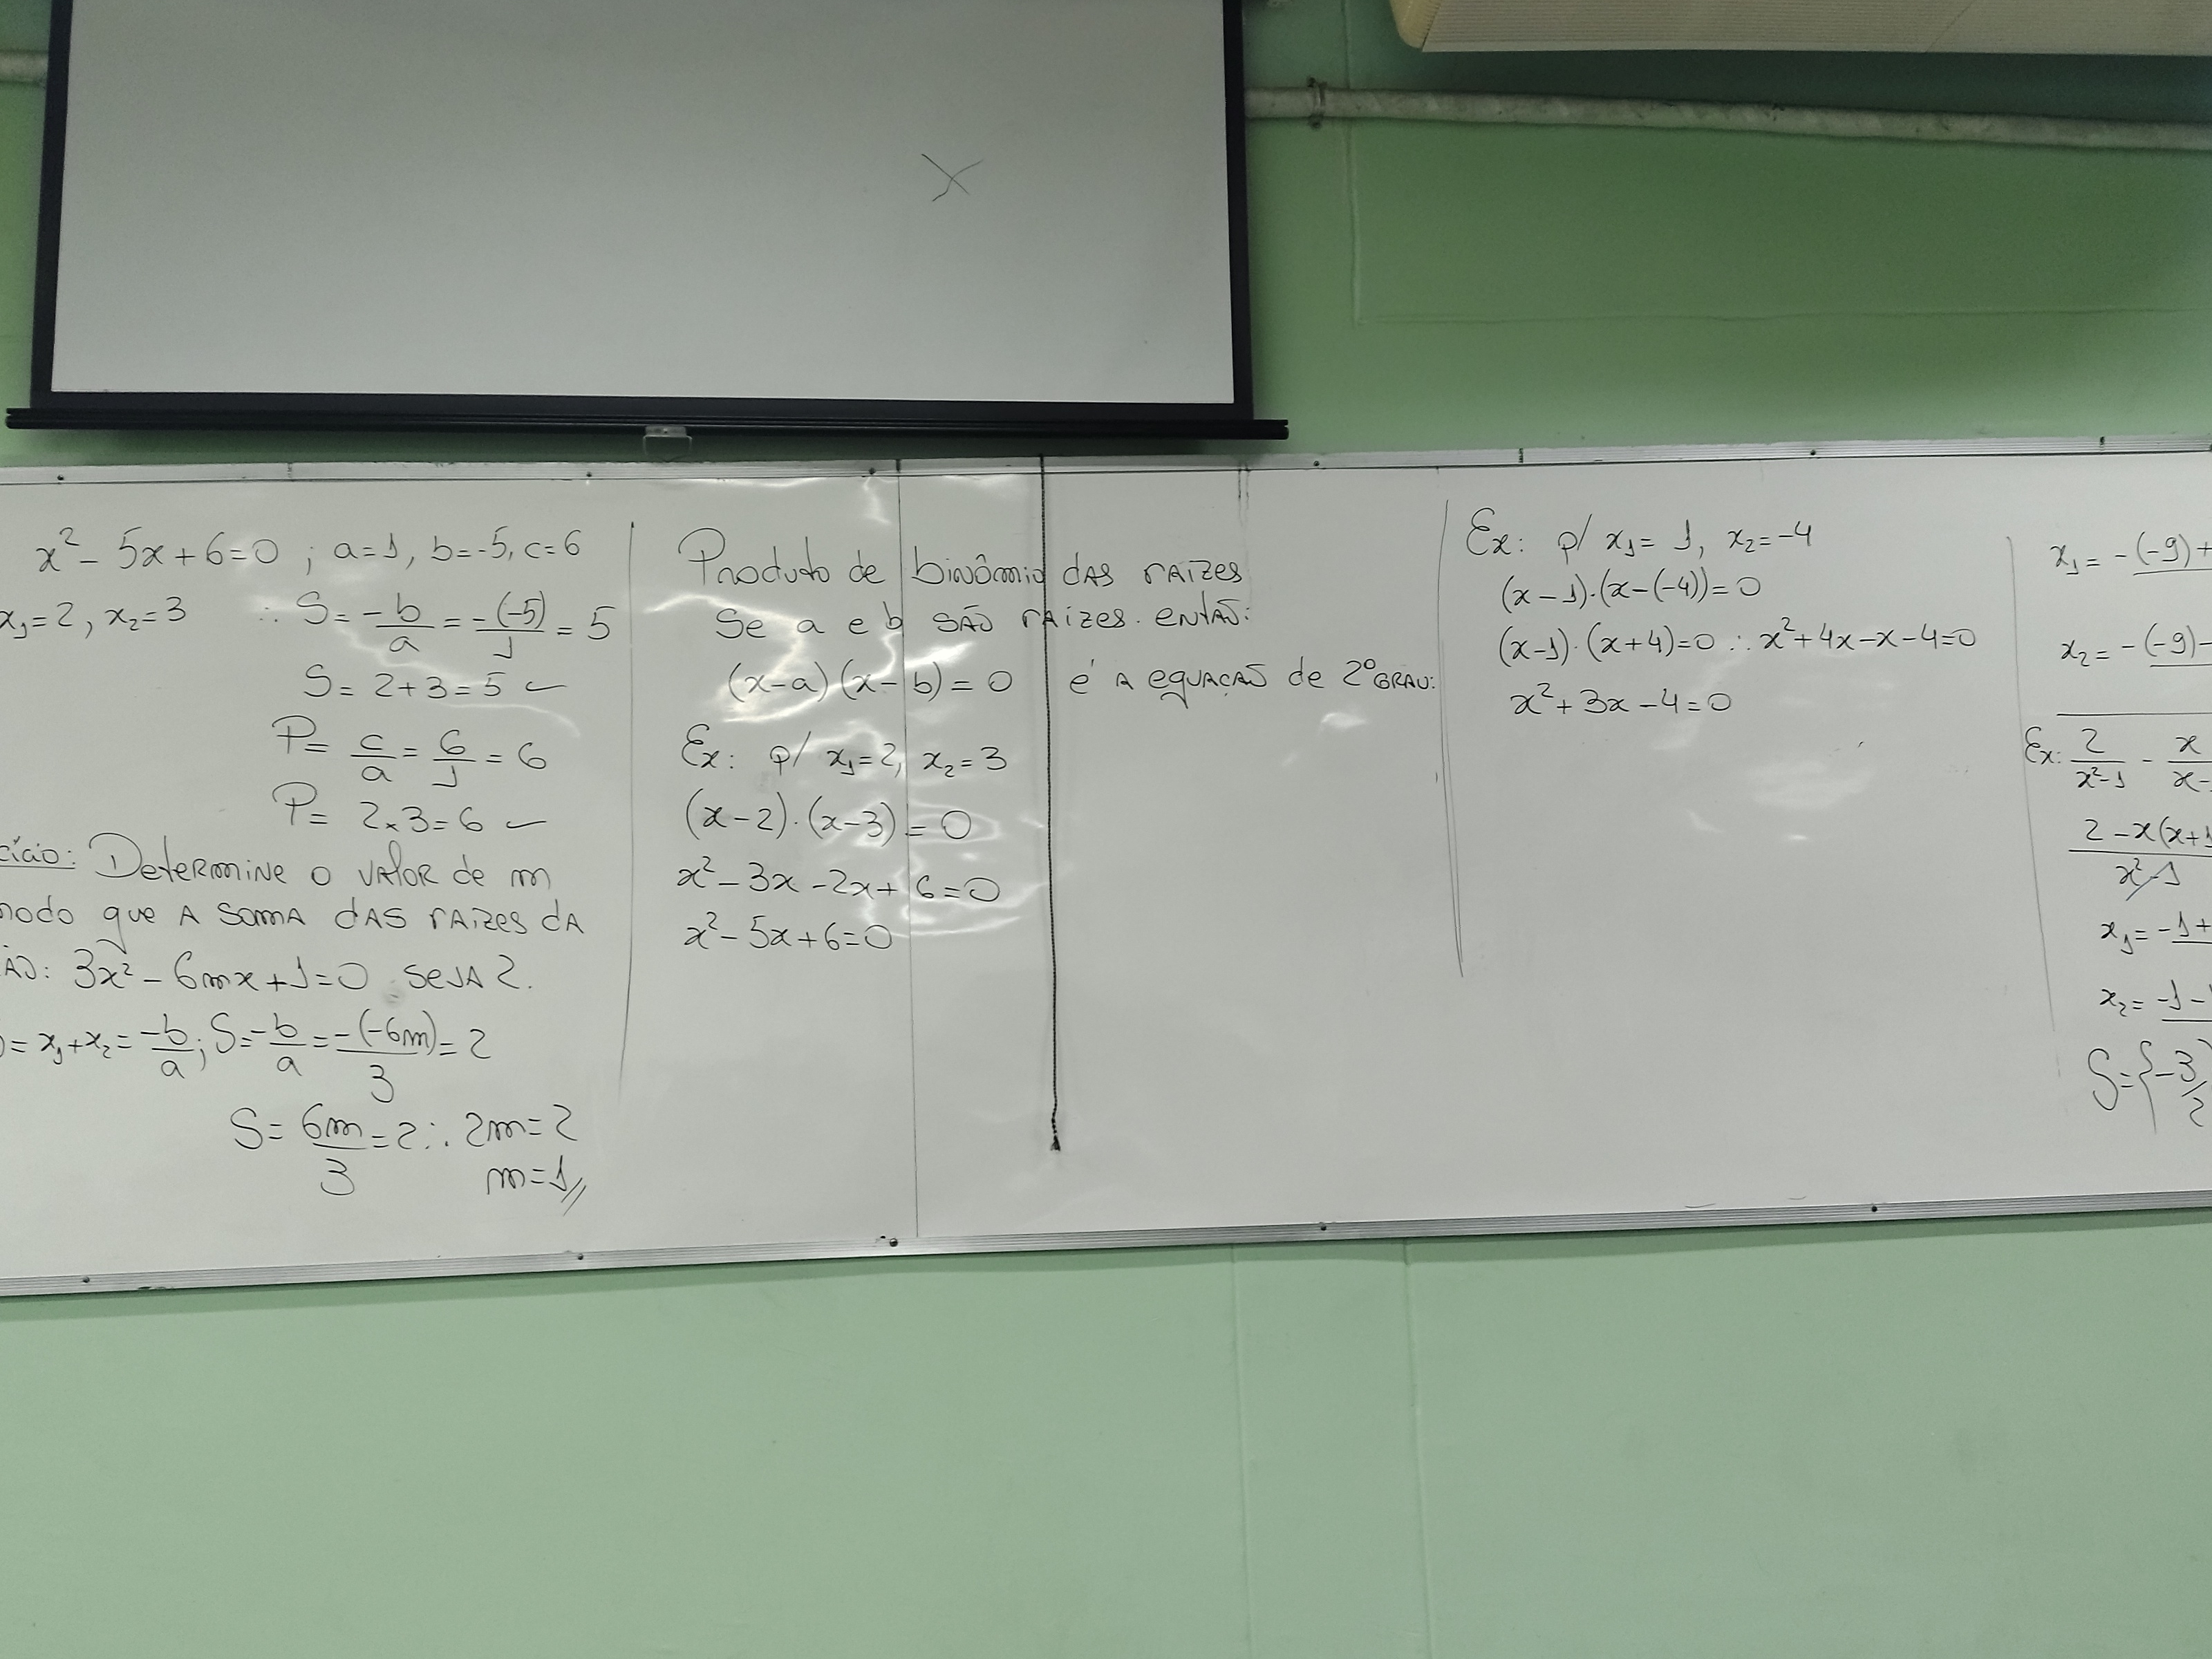 x
x² - 5x + 6 = 0 ; a = 1, b = -5, c = 6
x₁ = 2, x₂ = 3 ∴ S = -b/a = -(-5)/1 = 5
S = 2 + 3 = 5 ✓
P = c/a = 6/1 = 6
P = 2 × 3 = 6 ✓
cício: Determine o valor de m
modo que a soma das raizes da
ão: 3x² - 6mx + 1 = 0 seja 2.
= x₁ + x₂ = -b/a ; S = -b/a = -(-6m)/3 = 2
S = 6m/3 = 2 ∴ 2m = 2
m = 1 //
Produto de binômio das raizes
Se a e b são raízes. então:
(x-a)(x-b) = 0 é a equação de 2º grau:
Ex: p/ x₁ = 2, x₂ = 3
(x-2)·(x-3) = 0
x² - 3x - 2x + 6 = 0
x² - 5x + 6 = 0
Ex: p/ x₁ = 1, x₂ = -4
(x-1)·(x-(-4)) = 0
(x-1)·(x+4) = 0 ∴ x² + 4x - x - 4 = 0
x² + 3x - 4 = 0
x₁ = -(-9) +
x₂ = -(-9) -
Ex: 2/x²-1 - x/x-
2 - x(x+1/x²-1
x₁ = -1 +
x₂ = -1 -
S = {-3/2